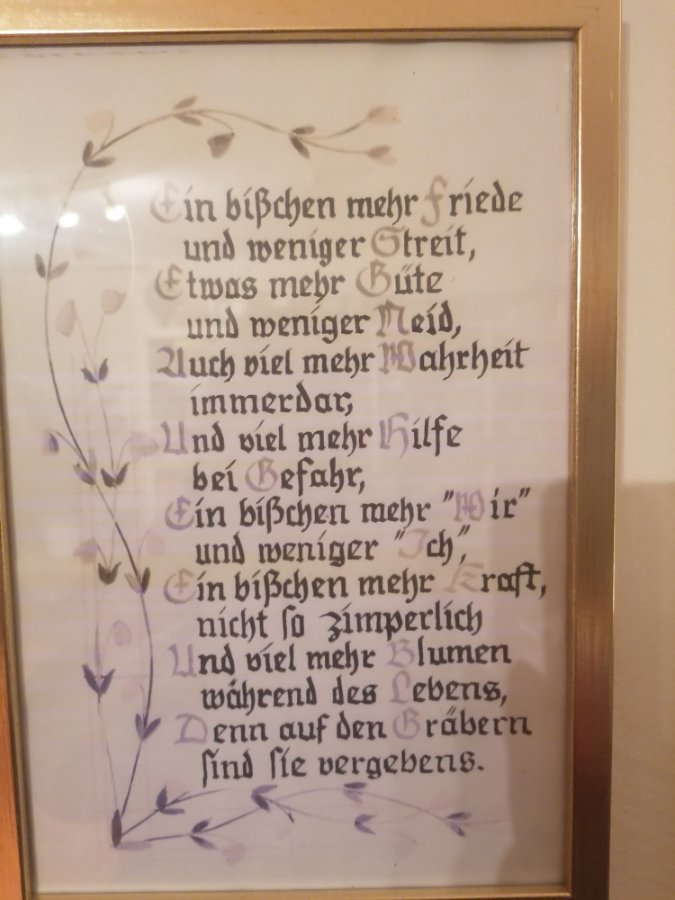 Ein bißchen mehr Friede
und weniger Streit,
Etwas mehr Güte
und weniger Neid,
Auch viel mehr Wahrheit
immerdar,
Und viel mehr Hilfe
bei Gefahr,
Ein bißchen mehr "Wir"
und weniger "Ich",
Ein bißchen mehr Kraft,
nicht so zimperlich
Und viel mehr Blumen
während des Lebens,
Denn auf den Gräbern
sind sie vergebens.